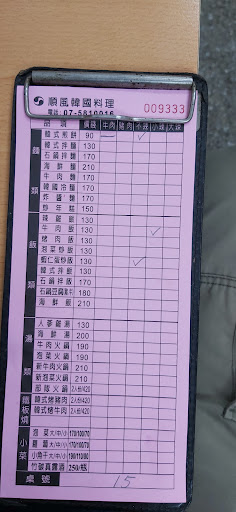 順風韓國料理
電話 07-5810016
009333
品項 價錢 牛肉 豬肉 不辣 小辣 大辣
麵類
韓式煎餅 90
韓式拌麵 130
石鍋拌麵 170
海鮮麵 210
牛肉麵 170
韓國冷麵 170
炸醬麵 170
炒年糕 150
飯類
辣雞飯 130
牛肉飯 130
豬肉飯 130
泡菜炒飯 130
蝦仁蛋炒飯 130
韓式拌飯 130
石鍋拌飯 170
石鍋豆腐 180
海鮮飯 210
湯類
人蔘雞湯 130
海鮮湯 200
牛肉火鍋 190
泡菜火鍋 190
新牛肉火鍋 210
新泡菜火鍋 210
部隊火鍋 2人份/420
鐵板燒
韓式烤豬肉 2人份/420
韓式烤牛肉 2人份/420
小菜
泡菜 大/中/小 170/100/70
大/中/小 170/100/70
小魚干 大/中/小 190/110/80
竹碳真露酒 250/瓶
桌號 15